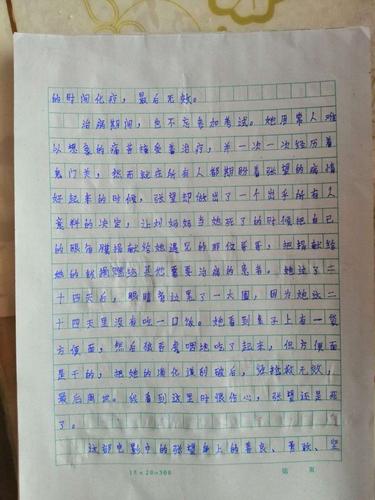 的时间化疗，最后无效。
治病期间，也不忘参加考试。她用常人难
以想象的痛苦接受着治疗，并一次一次经历着
鬼门关，然而就在所有人都期盼着张望的病情
好起来的时候，张望却做出了一个出乎所有人
意料的决定，让刘妈妈当她死了的时候把自己
的眼角膜捐献给她遇见的那位哥哥，把捐献给
她的钱捐赠给其他需要治病的患者。她过了二
十四天后，眼睛旁边黑了一大圈，因为她这二
十四天里没有吃一口饭。她看到桌子上有一袋
方便面，然后狼吞虎咽地吃了起来，但方便面
是干的，把她的消化道刮破后，抢救无效，
最后离世。我看到这里时很伤心，张望还是死
了。
这部电影中的张望身上的善良、勇敢、坚
15×20=300 第 页